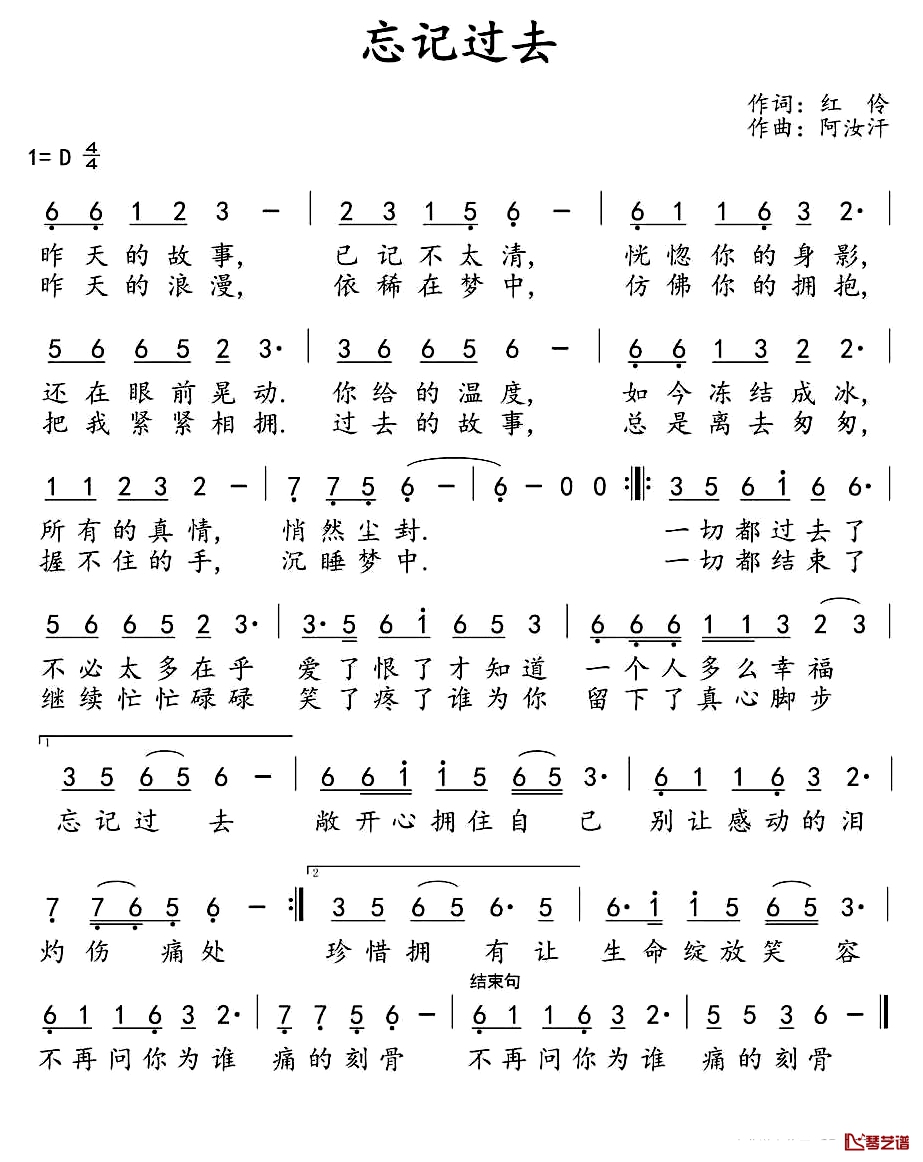 忘记过去
作词：红 伶
作曲：阿汝汗
1= D 4/4
6 6 1 2 3 – | 2 3 1 5 6 – | 6 1 1 6 3 2· |
昨天的故事, 已记不太清, 恍惚你的身影,
昨天的浪漫, 依稀在梦中, 仿佛你的拥抱,
5 6 6 5 2 3· | 3 6 6 5 6 – | 6 6 1 3 2 2· |
还在眼前晃动. 你给的温度, 如今冻结成冰,
把我紧紧相拥. 过去的故事, 总是离去匆匆,
1 1 2 3 2 – | 7 7 5 6 – | 6 – 0 0 :‖: 3 5 6 i 6 6· |
所有的真情, 悄然尘封. 一切都过去了
握不住的手, 沉睡梦中. 一切都结束了
5 6 6 5 2 3· | 3· 5 6 i 6 5 3 | 6 6 6 1 1 3 2 3 |
不必太多在乎 爱了恨了才知道 一个人多么幸福
继续忙忙碌碌 笑了疼了谁为你 留下了真心脚步
1
3 5 6 5 6 – | 6 6 i i 5 6 5 3· | 6 1 1 6 3 2· |
忘记过去 敞开心拥住自己 别让感动的泪
2
7 7 6 5 6 – :‖ 3 5 6 5 6· 5 | 6· i i 5 6 5 3· |
灼伤痛处 珍惜拥有让 生命绽放笑容
结束句
6 1 1 6 3 2· | 7 7 5 6 – | 6 1 1 6 3 2· | 5 5 3 6 – ‖
不再问你为谁 痛的刻骨 不再问你为谁 痛的刻骨
琴艺谱